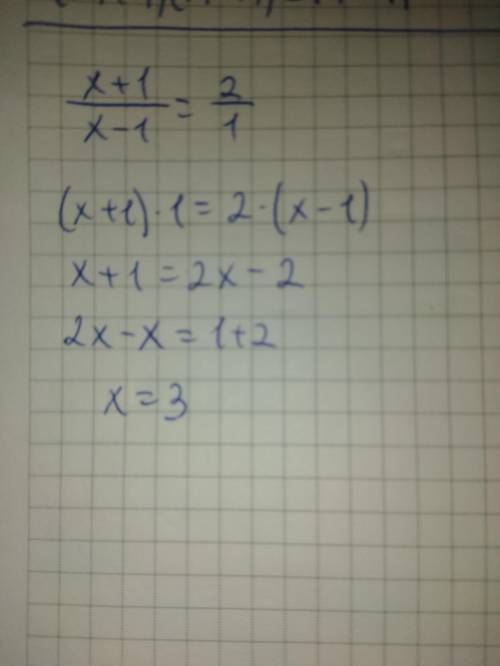 x+1/x-1 = 2/1
(x+1)·1=2·(x-1)
x+1=2x-2
2x-x=1+2
x=3